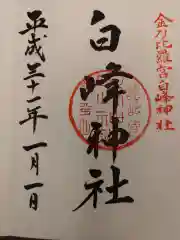 金刀比羅宮白峰神社
白峰神社
平成三十年一月一日